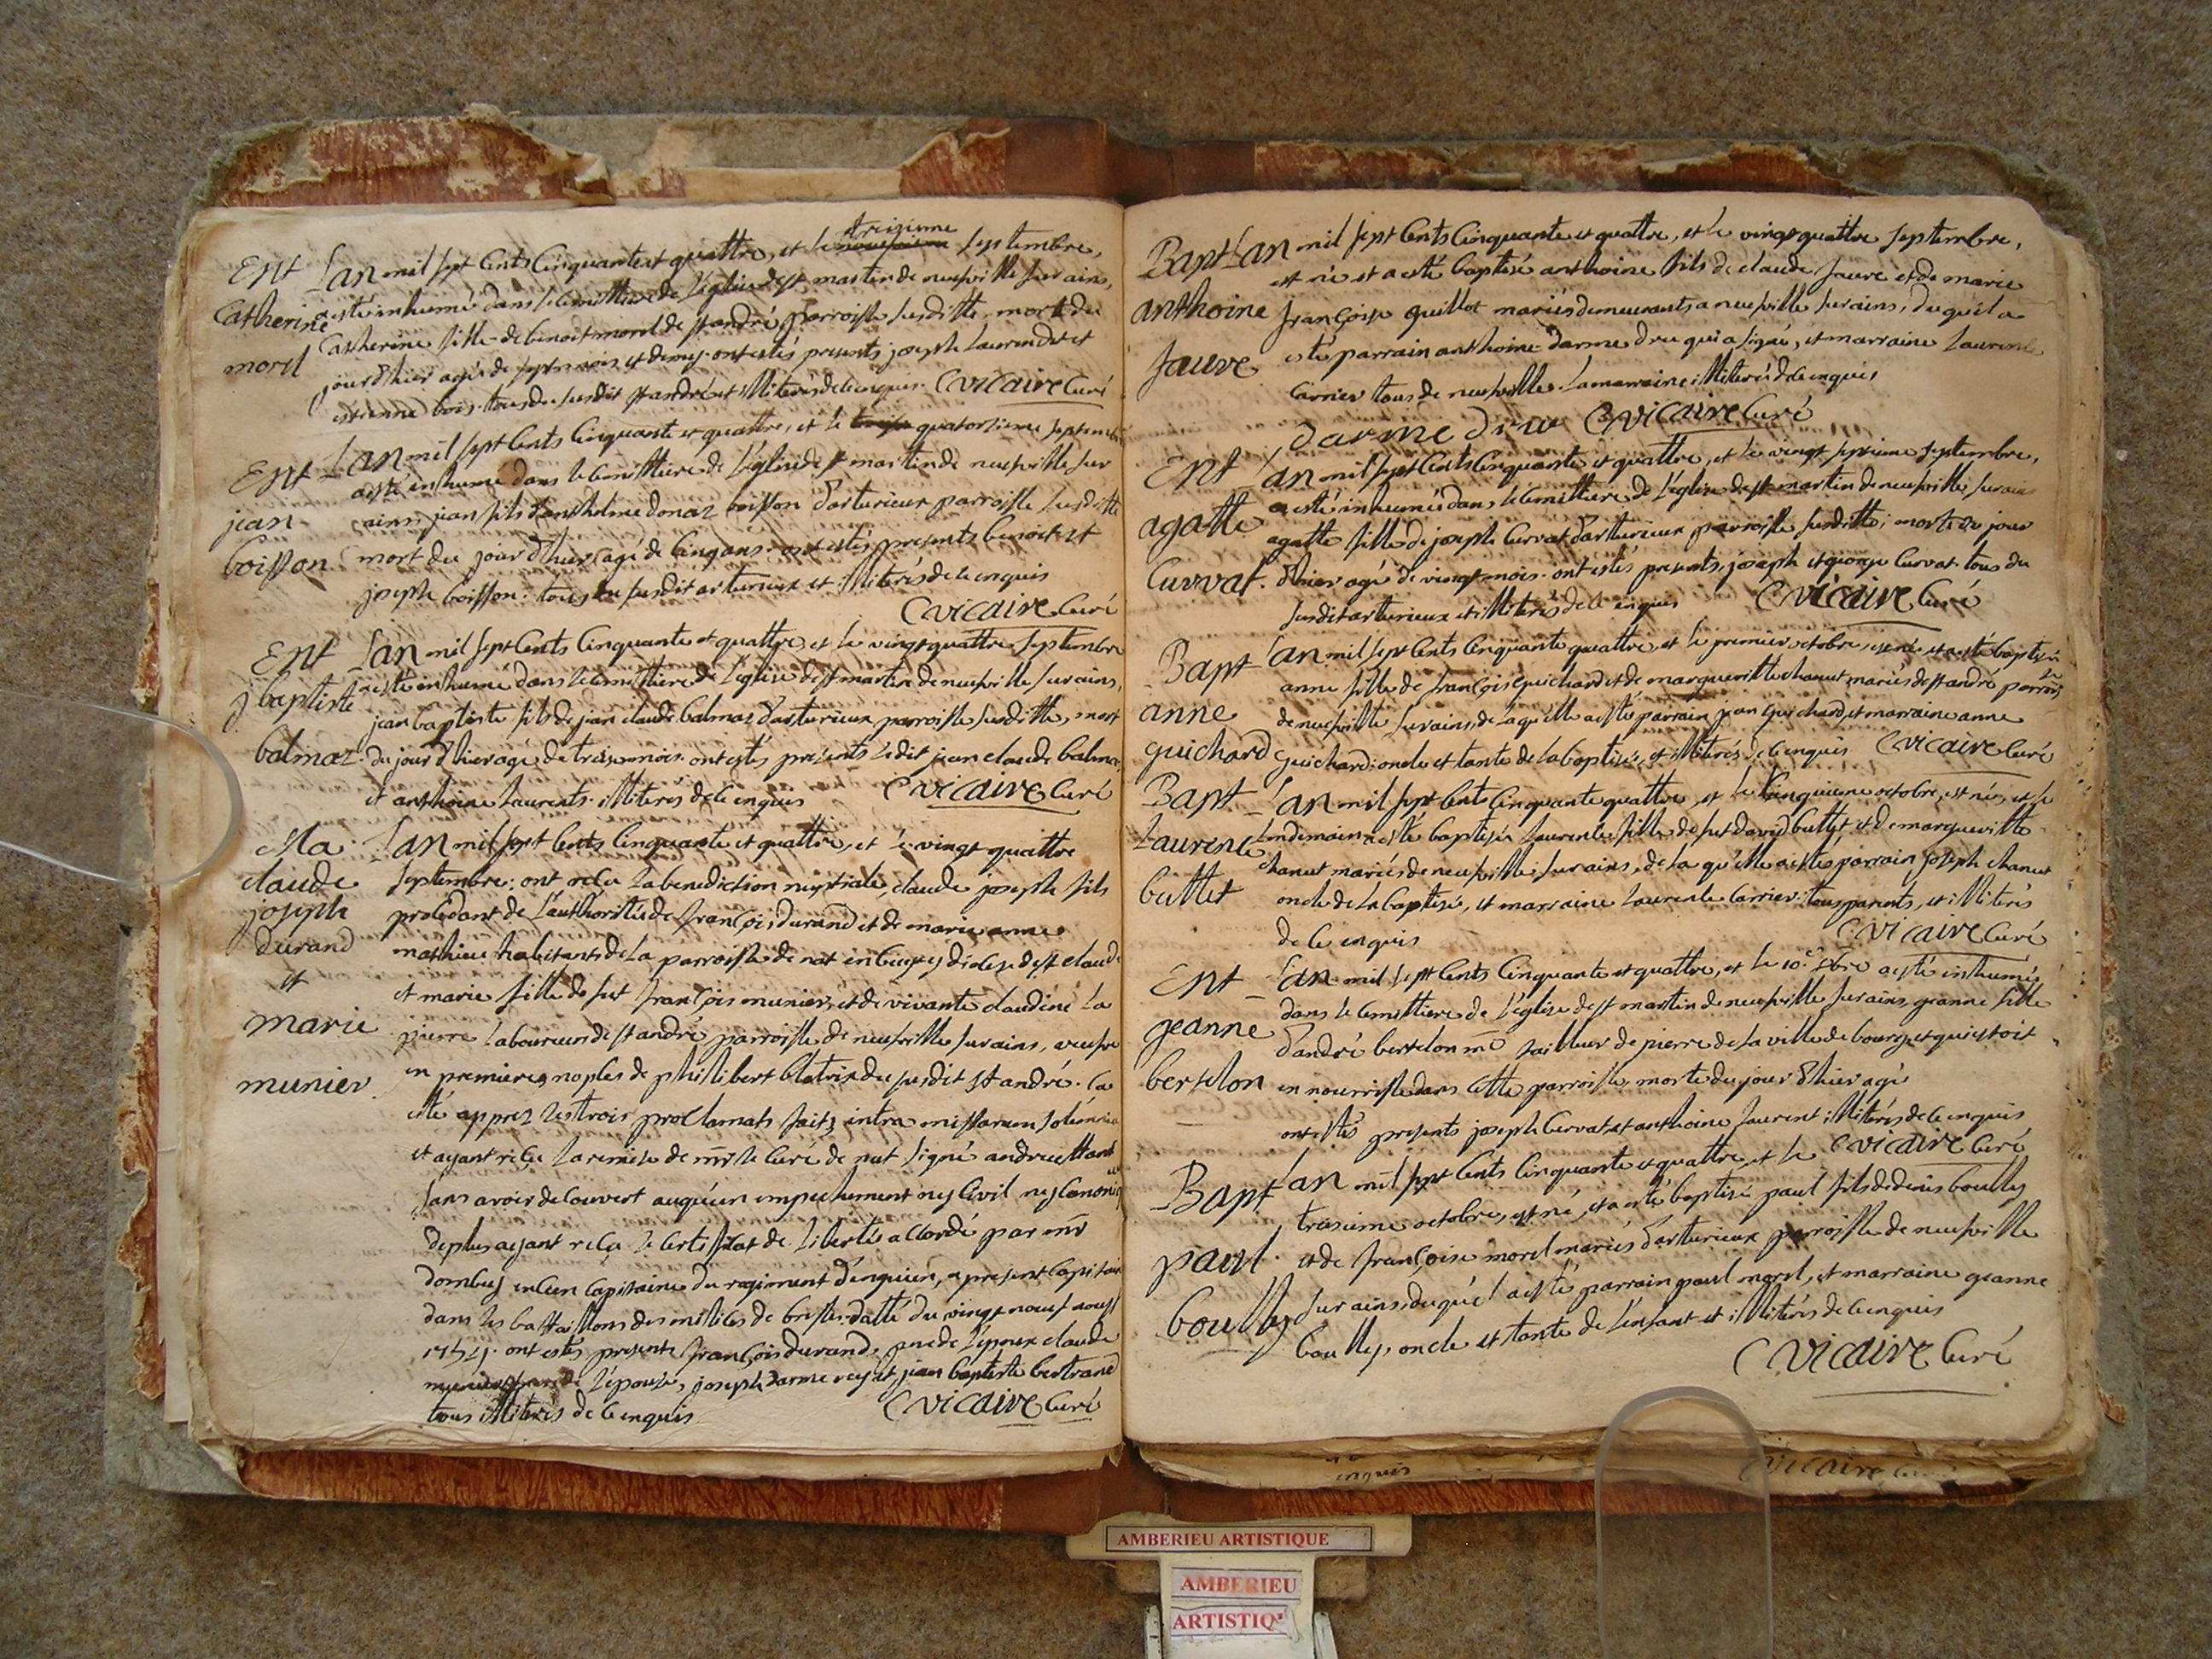 Ent Catherine morel
L'an mil sept Cents Cinquante et quattre, et le treizieme septembre,
a esté inhumé dans le Cimittiere de l'église de st martin de neufville sur ains,
Catherine fille de benoit morel de st andré parroisse susditte, morte du
jour d'hier agée de sept mois et demy. ont estés presents joseph Laurendet et
estienne bois. tous du susdit st andré et illiterés de ce enquis. C vicaire Curé
Ent jean boisson
L'an mil sept Cents Cinquante et quattre, et le quatorzieme septembre
a esté inhumé dans le Cimittiere de l'église de st martin de neufville sur
ains, jean fils d'anthelme donaz boisson d'arturieux parroisse susditte
mort du jour d'hier agé de Cinq ans. ont estés presents benoit et
joseph boisson. tous du susdit arturieux et illiterés de ce enquis
C vicaire Curé
Ent j baptiste balmaz
L'an mil sept Cents Cinquante et quattre, et le vingt quattre septembre
a esté inhumé dans le Cimittiere de l'église de st martin de neufville sur ains,
jean baptiste fils de jean claude balmaz d'arturieux parroisse susditte, mort
du jour d'hier agé de treise mois. ont estés presents ledit jean claude balmaz
et anthoine Laurent. illiteres de ce enquis C vicaire Curé
Ma claude joseph durand et marie munier
L'an mil sept Cents Cinquante et quattre, et le vingt quattre
septembre: ont reçu La benediction nuptiale, claude joseph fils
procedant de l'authorité de françois durand et de marie anne
mathieu habitants de La parroisse de nat en bugey diocese de st claude
et marie fille de fut françois munier, et de vivante claudine La
pierre Laboureur de st andré parroisse de neufville sur ains, veufve
en premieres noples de philibert blatrix du susdit st andré. Ca
esté apprez les trois proclamats faits intra missarum solemnia
et ayant reçu La remise de mr le Curé de nat signé andrue
sans avoir decouvert auqu'un empechement ny Civil ny Canoniq
de plus ayant reçu le Certifficat de Liberté accordé par mr
dombey en Cien Capitaine du regiment d'enguien, a present Capitaine
dans les battaillons des milices de bresse. datté du vingt neuf aoust
ont estés presents françois durand, pere de l'epoux claude
munier frere de l'épouse, joseph darme rey et jean baptiste bertrand
tous illiterés de ce enquis C vicaire Curé
Bapt anthoine fauve
L'an mil sept Cents Cinquante et quattre, et le vingt quattre septembre,
est né et a esté baptisé anthoine fils de claude fauve et de marie
françoise guillot mariés demeurants a neufville sur ains, duquel a
esté parrain anthoine darme dru qui a signé, et marraine Laurence
Carrier tous de neufville. La marraine illiterée de ce enquis
darme dru C vicaire Curé
Ent agatte Curvat
L'an mil sept Cents Cinquante et quattre, et le vingt septieme septembre,
a esté inhumée dans le Cimittiere de l'église de st martin de neufville sur ains
agatte fille de joseph Curvat d'arturieux parroisse susditte; morte du jour
d'hier agée de vingt mois. ont estés presents, joseph et george Curvat. tous du
susdit arturieux et illiterés de ce enquis C vicaire Curé
Bapt anne guichard
L'an mil sept Cents Cinquante quattre, et le premier octobre, est née et a esté baptisée
anne fille de françois guichard et de margueritte chanut mariés de st andré parroisse
de neufville sur ains, de laqu'elle a esté parrain jean guichard, et marraine anne
guichard: oncle et tante de la baptisée, et illiterés de ce enquis C vicaire Curé
Bapt Laurence buttet
L'an mil sept Cents Cinquante quattre, et le Cinquieme octobre, est née, et le
Lendemain a esté baptisée Laurence fille de fut david buttet et de margueritte
chanut mariés de neufville sur ains, de la qu'elle a esté parrain joseph chanut
oncle de la baptisée, et marraine Laurence Carrier. tous parents, et illiterés
de ce enquis C vicaire Curé
Ent geanne bertelon
L'an mil sept Cents Cinquante et quattre, et le 10e 8bre a esté inhumée
dans le Cimittiere de l'église de st martin de neufville sur ains, geanne fille
d'andré bertelon me tailleur de pierre de la ville de bourg, et qui estoit
en nourrisse dans Cette parroisse, morte du jour d'hier agée
ont estés presents joseph Curvat et anthoine Laurent illiterés de ce enquis
C vicaire Curé
Bapt paul boulley
L'an mil sept Cents Cinquante et quattre et le
treisieme octobre, est né, et a esté baptisé paul fils de denis boulley
et de françoise morel mariés d'arturieux parroisse de neufville
sur ains, duquel a esté parrain paul morel, et marraine geanne
boulley, oncle et tante de l'enfant et illiterés de ce enquis
C vicaire Curé
enquis
C vicaire
AMBERIEU ARTISTIQUE
AMBERIEU
ARTISTIQ